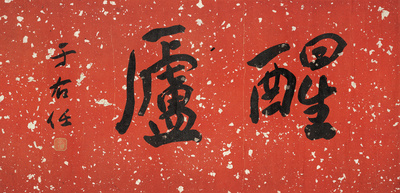 醒廬
于右任